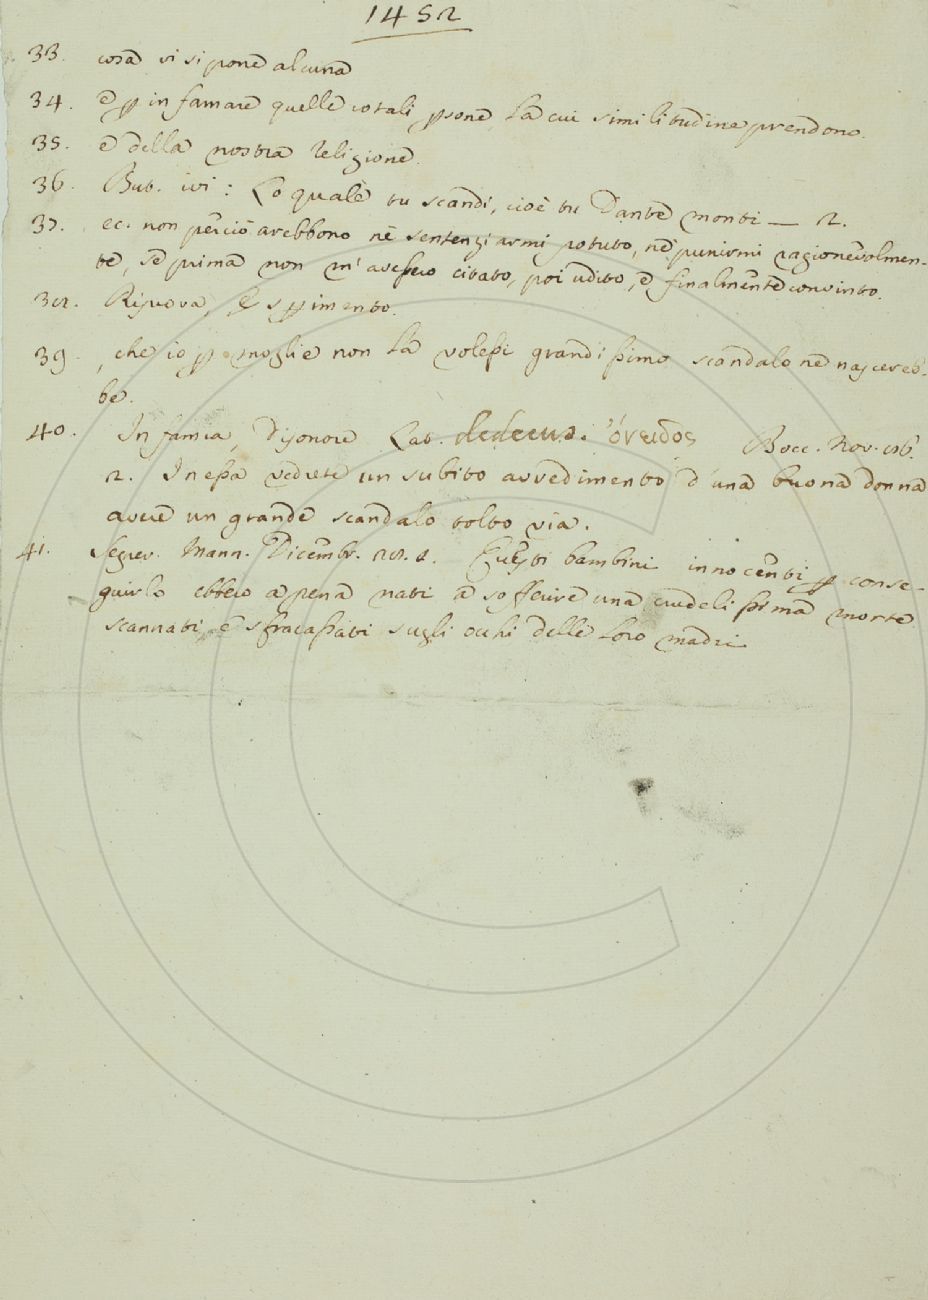 1452
33. cosa vi si pone alcuna
34. e p in famare quelle cotali psone, la cui similitudine prendono.
35. e della nostra religione.
36. But. ivi: Lo quale tu scandi, cioè tu Dante monti — 2.
37. ec. non perciò arebbono nè sentenziarmi potuto, nè punirmi ragionevolmen-
te, se prima non m'avesero citato, poi udito, e finalmente convinto.
38. Ripuova, E sppimento.
39. , che io p moglie non la volessi grandissimo scandalo ne nascereb-
be.
40. Infamia, Disonore Lat. dedecus. ὄνειδος Bocc. Nov. 26.
2. In essa vedrete un subito avvedimento d'una buona donna
avere un grande scandalo tolto via.
41. Segner. Mann. Dicembr. 28. 1. Questi bambini innocenti p conse-
guirlo ebbero apena nati a sofferire una crudelissima morte
scannati, e sfracassati sugli occhi delle loro madri